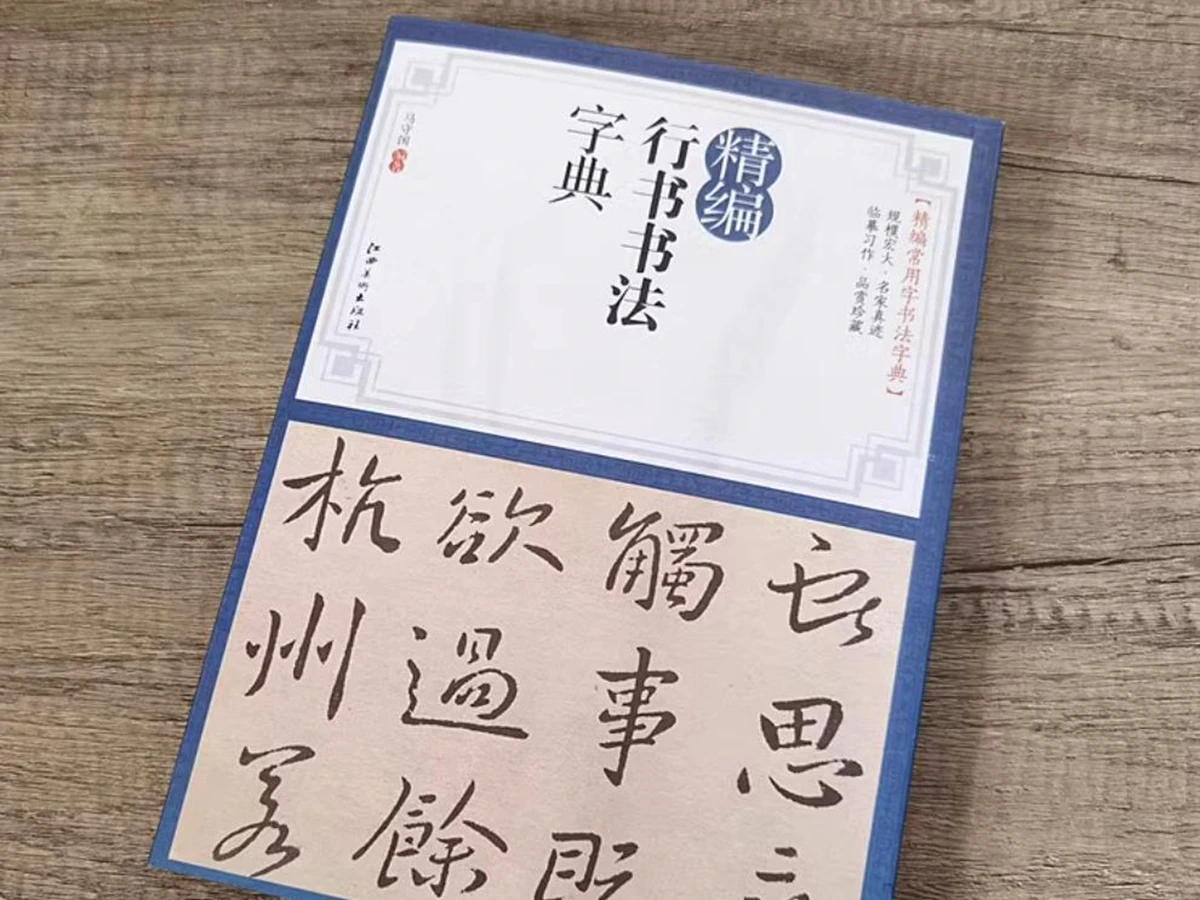 【精编常用字书法字典】
规模宏大·名家真迹
临摹习作·品赏珍藏
精编
行书书法
字典
马守国 编著
江西美术出版社
思
觸事
欲過餘
杭州若